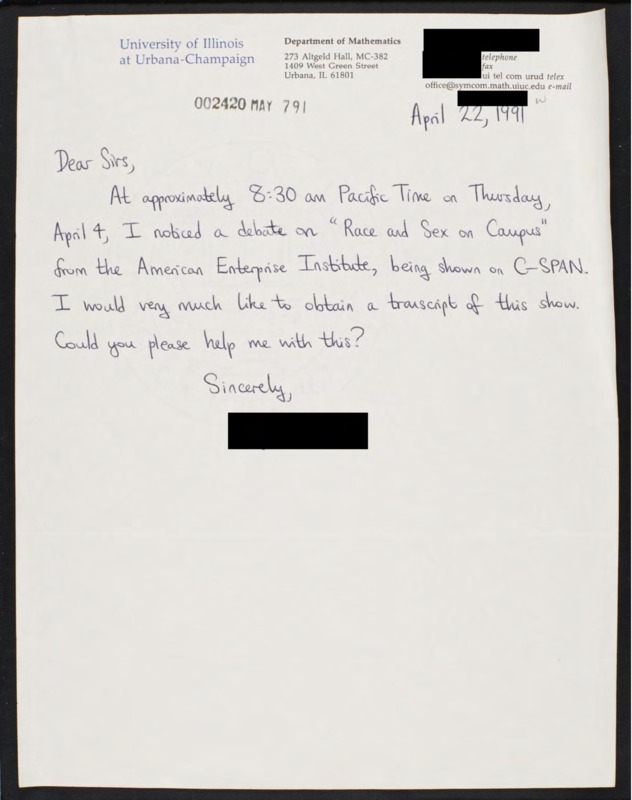 University of Illinois
at Urbana-Champaign
Department of Mathematics
273 Altgeld Hall, MC-382
1409 West Green Street
Urbana, IL 61801
telephone
fax
ui tel com urud telex
office@symcom.math.uiuc.edu e-mail
002420 MAY 7 91
April 22, 1991
Dear Sirs,
At approximately 8:30 am Pacific Time on Thursday,
April 4, I noticed a debate on "Race and Sex on Campus"
from the American Enterprise Institute, being shown on C-SPAN.
I would very much like to obtain a transcript of this show.
Could you please help me with this?
Sincerely,